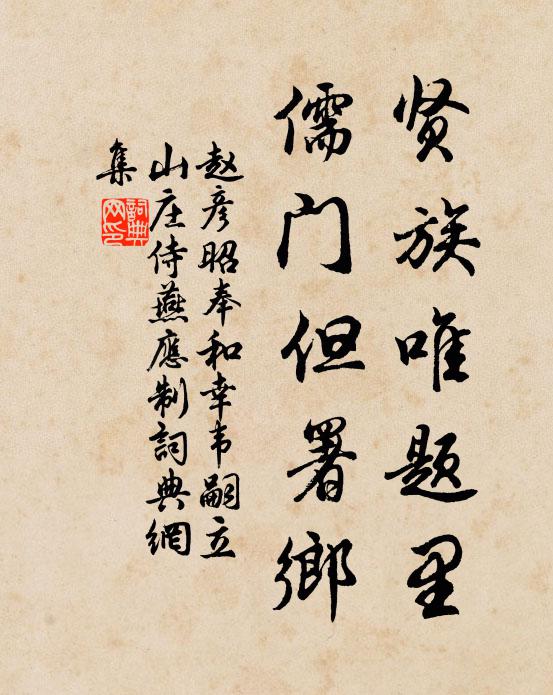 贤族唯题里
儒门但署鄉
赵彦昭奉和幸韦嗣立
山庄侍燕應制詞典網
集
詞典
网印